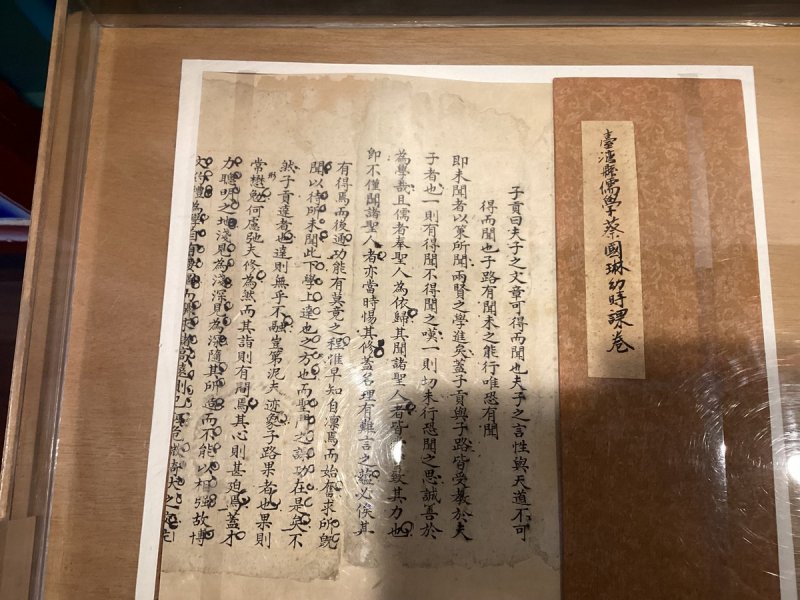 臺澎兵備儒學蔡國琳幼時課卷
子貢曰夫子之文章可得而聞也夫子之言性與天道不可
得而聞也子路有聞未之能行唯恐有聞
即未聞者以策所聞兩賢之學進矣蓋子貢與子路皆受教於夫
子者也一則有得聞不得聞之嘆一則切未行恐聞之思誠善於
為學哉且儒者奉聖人為依歸其聞諸聖人者皆 致其力也
即不僅聞諸聖人者亦當時惕其修蓋名理有難言之蘊必俟其
有得焉而後通功能有莫竟之程惟早知自凜焉而始奮求所既
聞以待所未聞此下學上達也之方也而聖門之 功在是矣不
然子貢達者也達則無乎不融豈第泥夫迹象子路果者也果則
常懋勉何慮弛夫修為然而其詣則有間焉其心則甚迫焉蓋才
力聰明之地淺見為淺深見為深隨其所造而不能以相強故博
文約禮為學